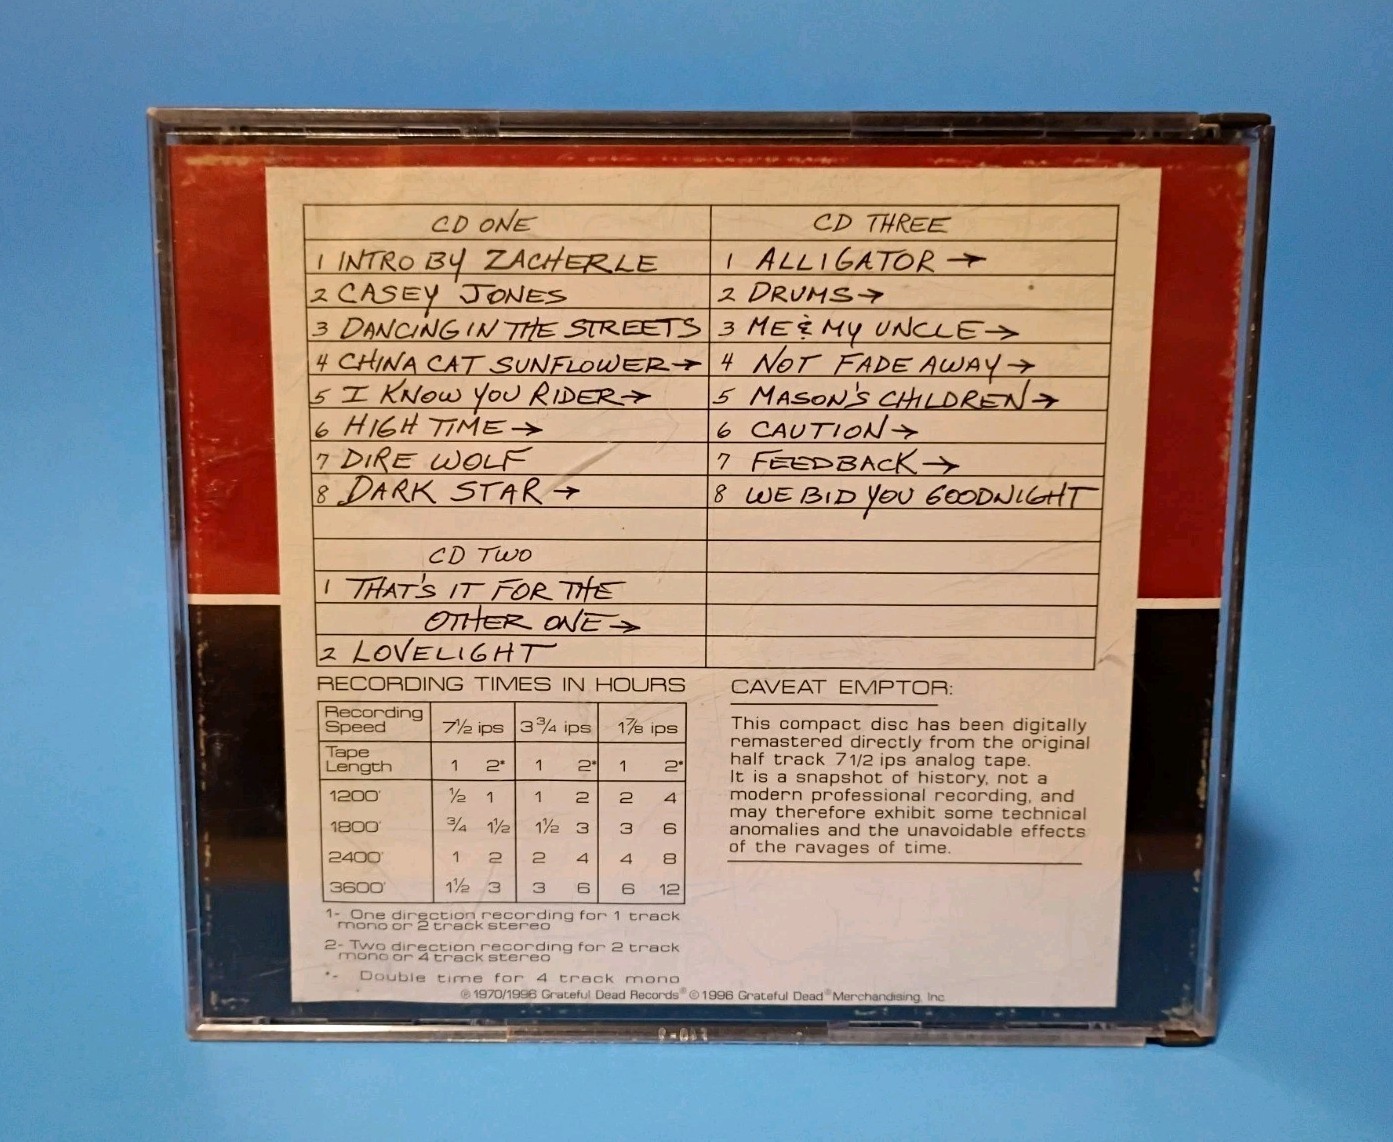 CD ONE
1 INTRO BY ZACHERLE
2 CASEY JONES
3 DANCING IN THE STREETS
4 CHINA CAT SUNFLOWER→
5 I KNOW YOU RIDER→
6 HIGH TIME→
7 DIRE WOLF
8 DARK STAR→
CD TWO
1 THAT'S IT FOR THE
OTHER ONE→
2 LOVELIGHT
CD THREE
1 ALLIGATOR→
2 DRUMS→
3 ME & MY UNCLE→
4 NOT FADE AWAY→
5 MASON'S CHILDREN→
6 CAUTION→
7 FEEDBACK→
8 WE BID YOU GOODNIGHT
RECORDING TIMES IN HOURS
Recording Speed 7½ ips 3¾ ips 1⅞ ips
Tape Length 1 2* 1 2* 1 2*
1200' ½ 1 1 2 2 4
1800' ¾ 1½ 1½ 3 3 6
2400' 1 2 2 4 4 8
3600' 1½ 3 3 6 6 12
1- One direction recording for 1 track
mono or 2 track stereo
2- Two direction recording for 2 track
mono or 4 track stereo
*- Double time for 4 track mono
CAVEAT EMPTOR:
This compact disc has been digitally
remastered directly from the original
half track 7 1/2 ips analog tape.
It is a snapshot of history, not a
modern professional recording, and
may therefore exhibit some technical
anomalies and the unavoidable effects
of the ravages of time.
℗ 1970/1996 Grateful Dead Records® © 1996 Grateful Dead® Merchandising, Inc